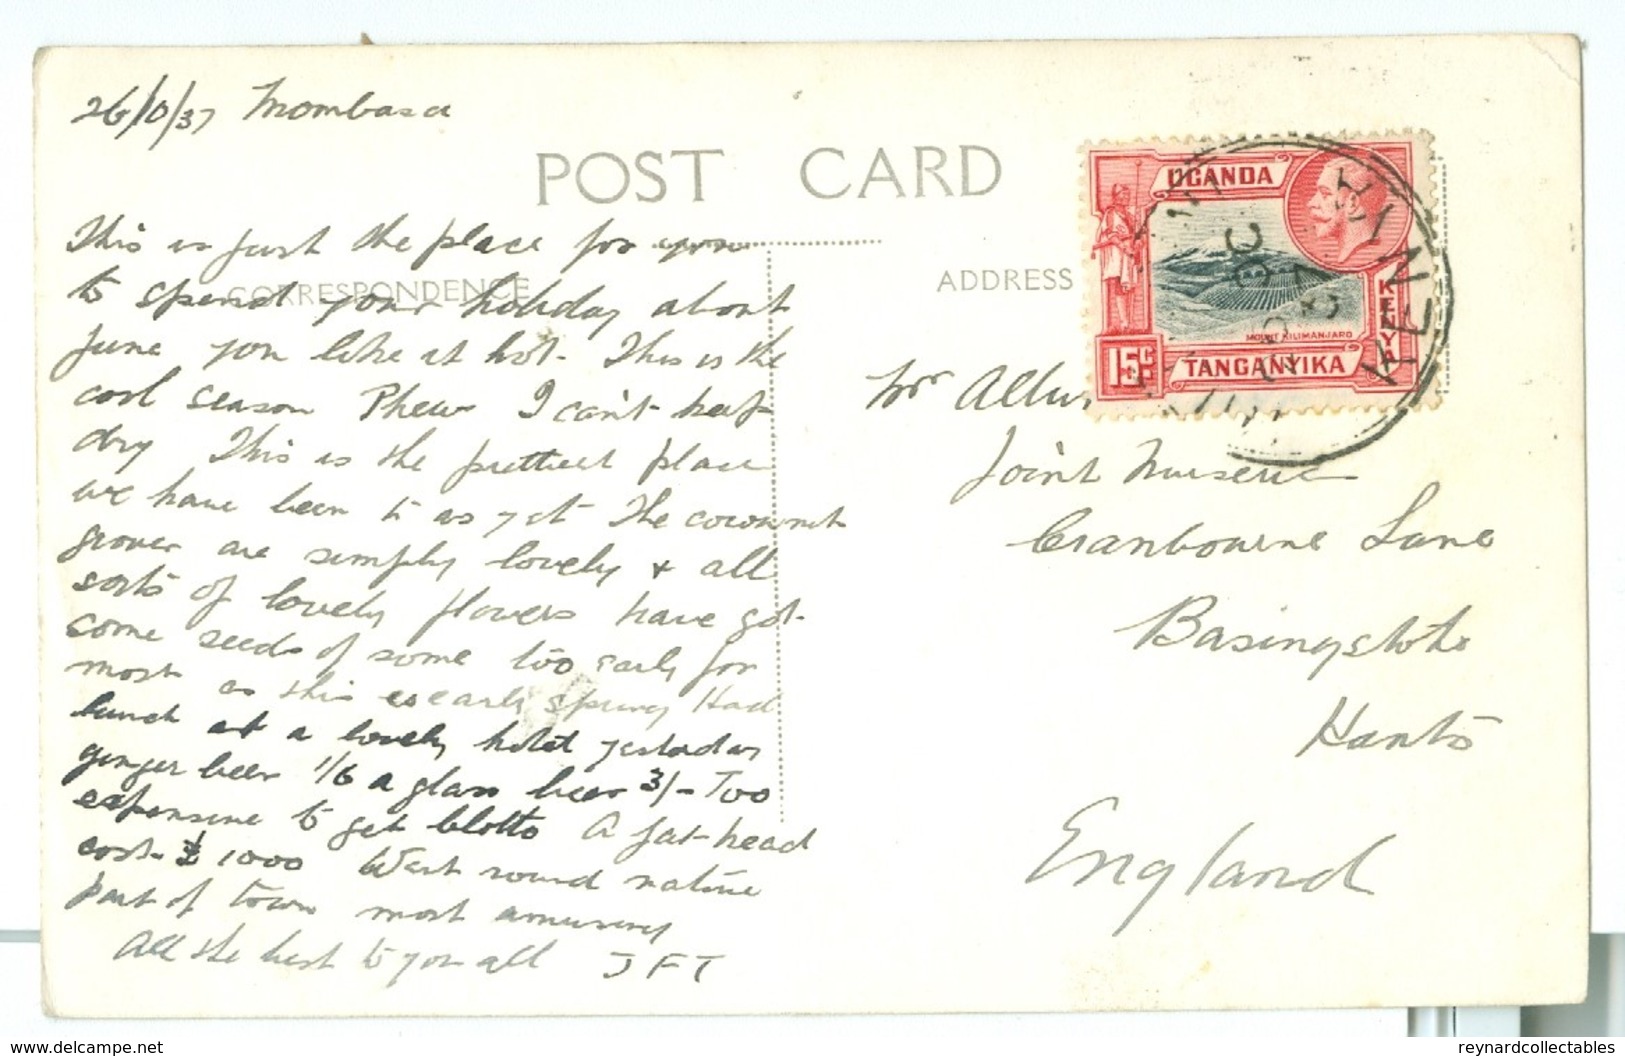 26/10/37 Mombasa
POST CARD
This is just the place for you
CORRESPONDENCE
to spend your holiday about
June you like it hot. This is the
cool season Phew I can't keep
dry This is the prettiest place
we have been to as yet The cocoanut
groves are simply lovely & all
sorts of lovely flowers have got
some seeds of some too early for
most as this is early spring Had
lunch at a lovely hotel yesterday
ginger beer 1/6 a glass beer 3/- Too
expensive to get blotto A fat-head
cost £1000 Went round native
part of town most amusing
All the best to you all JFT
ADDRESS
UGANDA
KENYA
MOUNT KILIMANJARO
15c
TANGANYIKA
Mr
Joint Nurseries
Cranbourne Lane
Basingstoke
Hants
England
delcampe.net
reynardcollectables